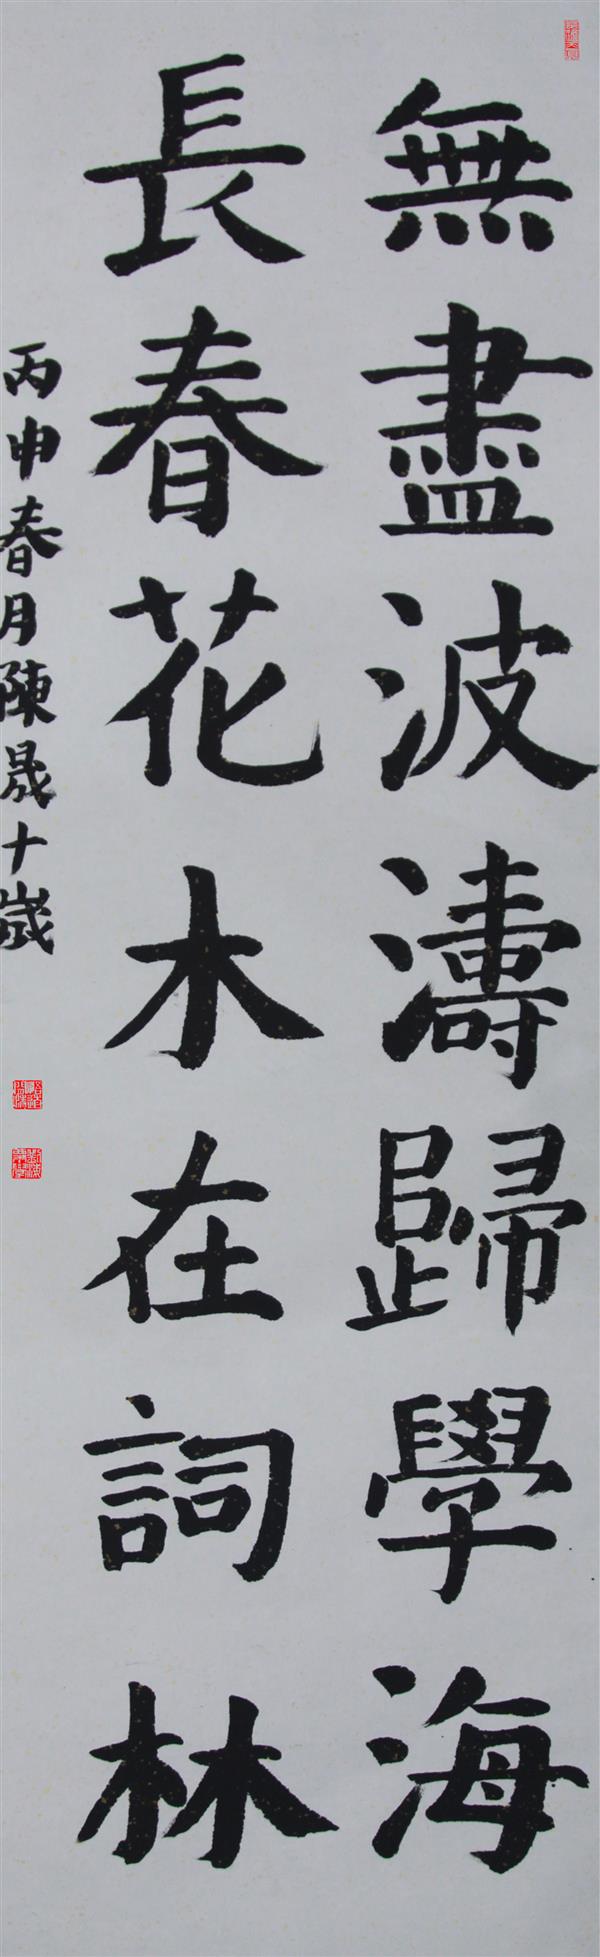 無盡波濤歸學海
長春花木在詞林
丙申春月陳晟十歲